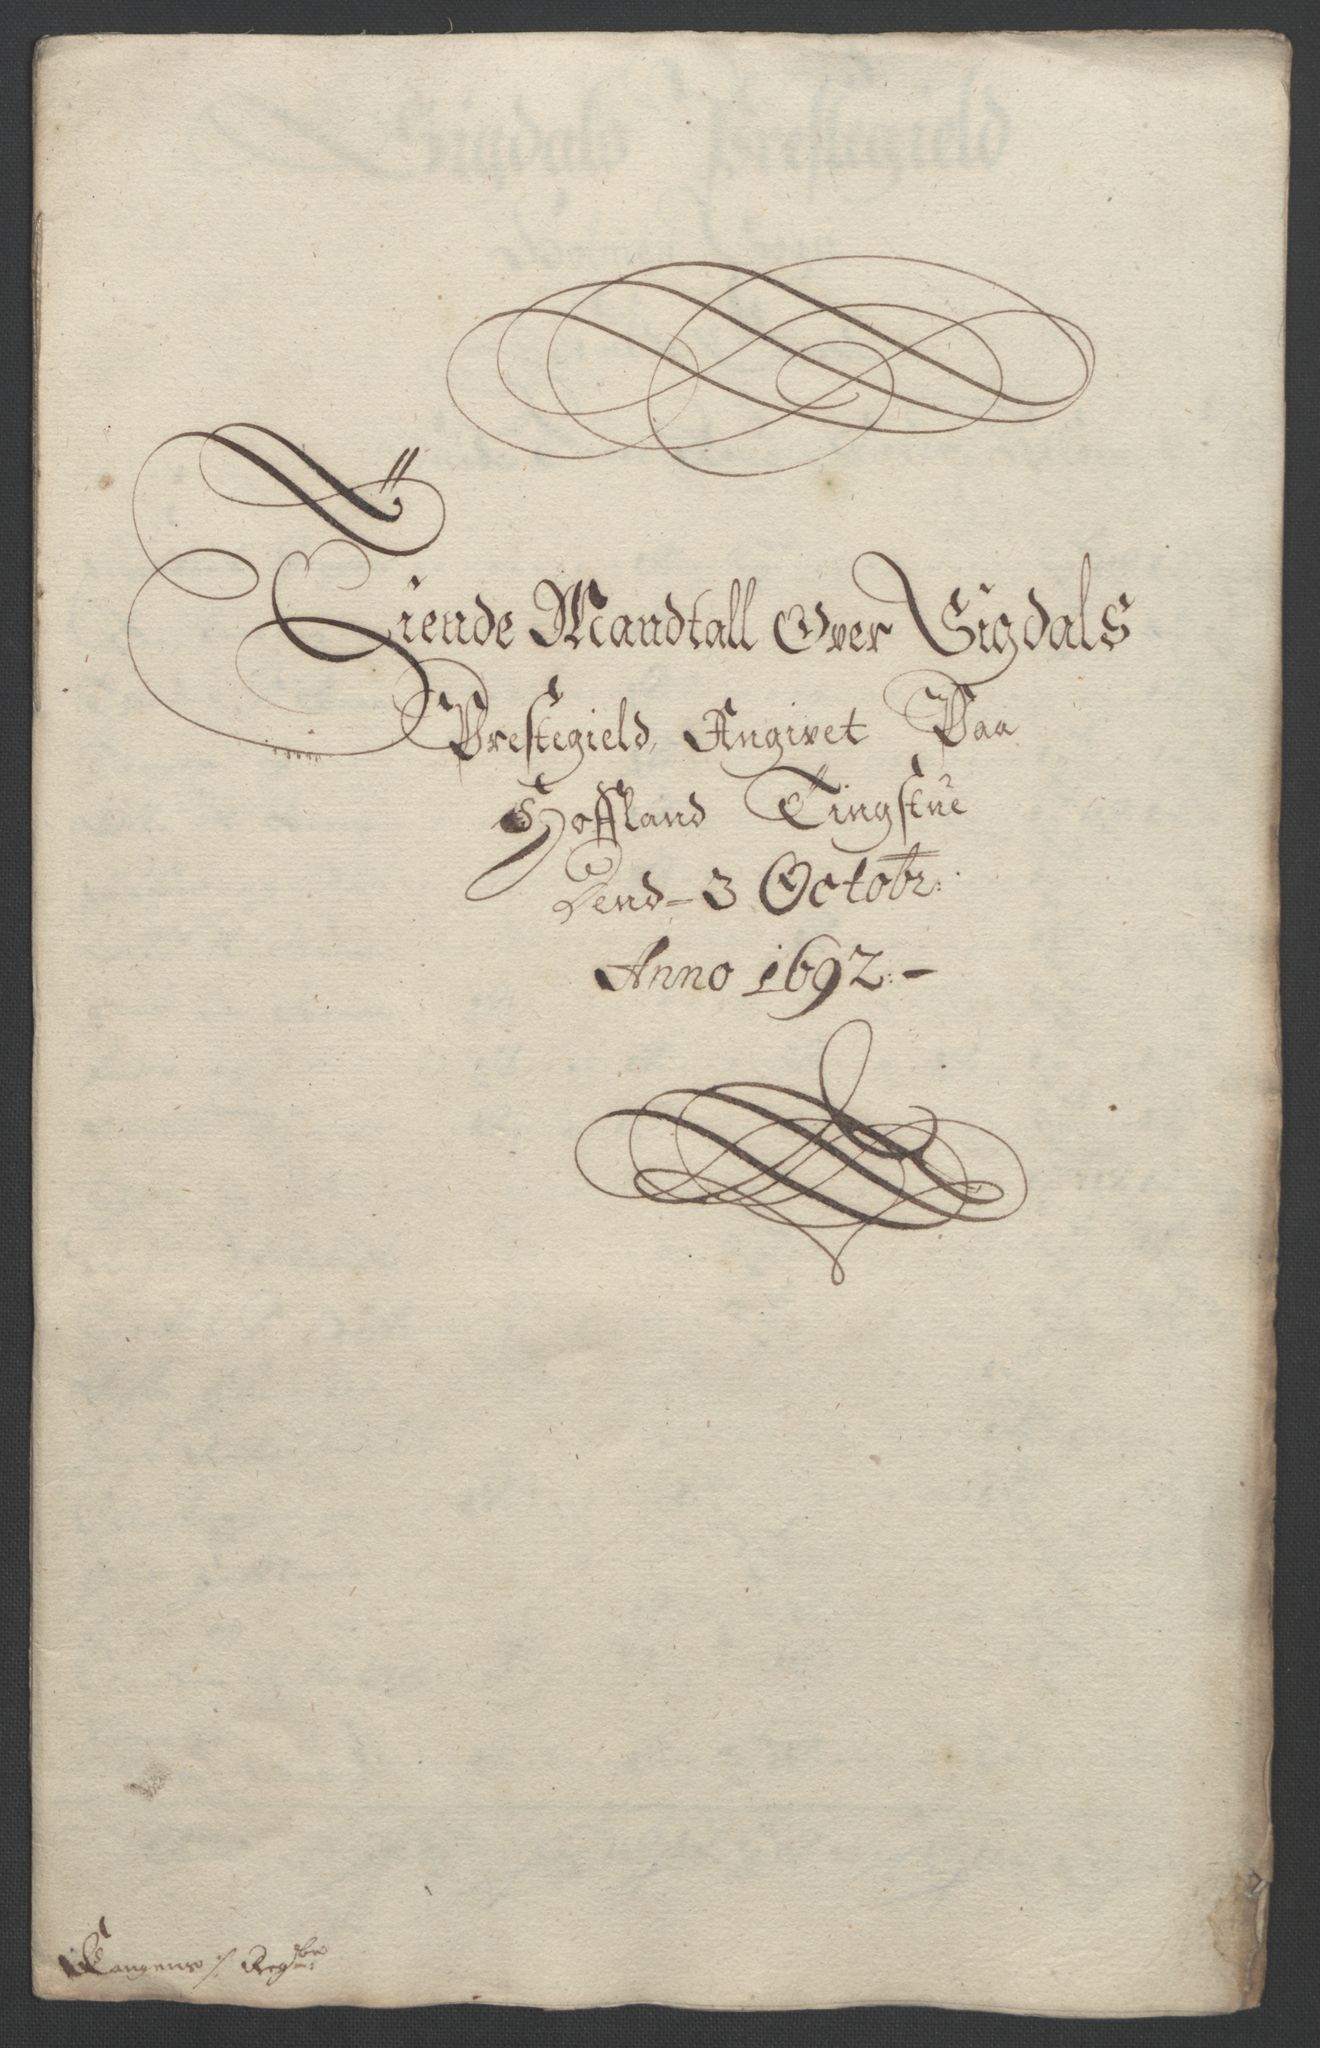 Tiende Mandtall Over Sigdals
Prestegield, Angivet Paa
Hoffland Tingstue
Dend 3 Octobr:
Anno 1692:-